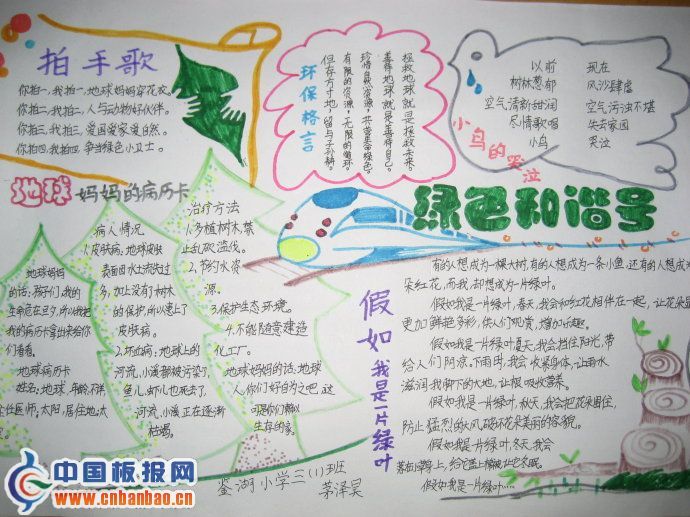 拍手歌
你拍一,我拍一,地球妈妈穿花衣。
你拍二,我拍二,人与动物好伙伴。
你拍三,我拍三,爱国爱家爱自然。
你拍四,我拍四,争当绿色小卫士。
环保格言
拯救地球就是拯救未来。
善待地球就是善待自己。
珍惜自然资源,共营生命绿色。
有限的资源,无限的循环。
但存方寸地,留与子孙耕。
小鸟的哭泣
以前
树林葱郁
空气清新甜润
尽情歌唱
小鸟
现在
风沙肆虐
空气污浊不堪
失去家园
哭泣
绿色和谐号
地球妈妈的病历卡
地球妈妈
的话:孩子们,我的
生命危在旦夕,所以我把
我的病历拿出来给你
们看看。
地球病历卡
姓名:地球,年龄:不详
主任医师,太阳,居住地:太
病人情况
1.皮肤病:地球皮肤
表面因水土流失过
多,加上没有了树木
的保护,所以患上了
皮肤病。
2.坏血病:地球上的
河流,小溪都被污染了,
鱼儿,虾儿也死去了,
河流,小溪正在逐渐
枯竭。
治疗方法
1.多植树木,禁
止乱砍滥伐。
2.节约水资
源。
3.保护生态环境。
4.不能随意建造
化工厂。
地球妈妈的话:地球
人,你们好自为之吧,这
可是你们赖以
生存的家。
假如我是一片绿叶
有的人想成为一棵大树,有的人想成为一条小鱼,还有的人想
朵红花,而我,却想成为一片绿叶。
假如我是一片绿叶,春天,我会和红花相伴在一起,让花朵
更加鲜艳多彩,供人们观赏,增加乐趣。
假如我是一片绿叶,夏天,我会挡住阳光,带
给人们阴凉。下雨时,我会收集身体,让雨水
滋润我脚下的大地,让根吸收营养。
假如我是一片绿叶,秋天,我会把花朵围住,
防止猛烈的大风破坏花朵美丽的容貌。
假如我是一片绿叶,冬天,我会
假如我是一片绿叶……
鉴湖小学三(1)班
茅泽昊
中国板报网
www.cnbanbao.cn